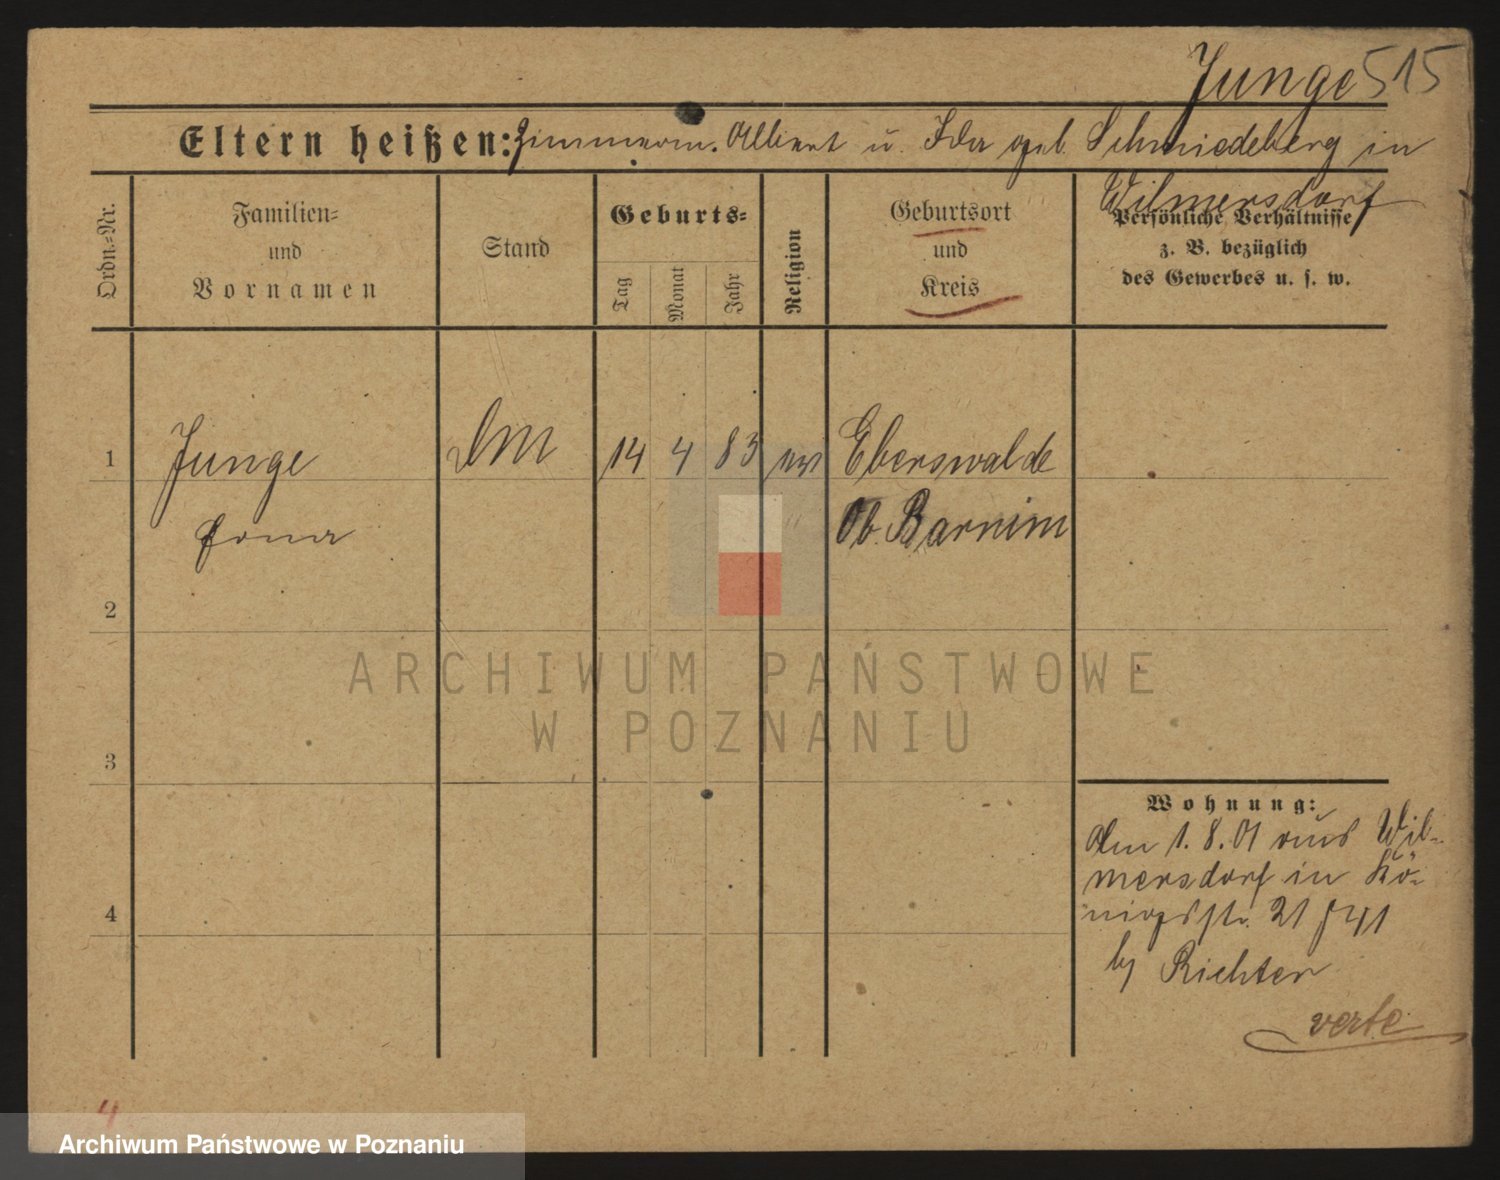 Junge 515
Eltern heißen: Zimmerm. Albert u. Ida geb. Schmiedeberg in
Wilmersdorf
Ordn.-Nr.
Familien-
und
Vornamen
Stand
Geburts-
Tag
Monat
Jahr
Religion
Geburtsort
und
Kreis
Persönliche Verhältnisse
z. B. bezüglich
des Gewerbes u. s. w.
1
Junge
14 4 83
Eberswalde
Ob. Barnim
2
3
4
Wohnung:
Am 1. 8. 01 aus Wil-
mersdorf in Kö-
nigsstr. 21
by Richter
verte
4
ARCHIWUM PAŃSTWOWE
W POZNANIU
Archiwum Państwowe w Poznaniu